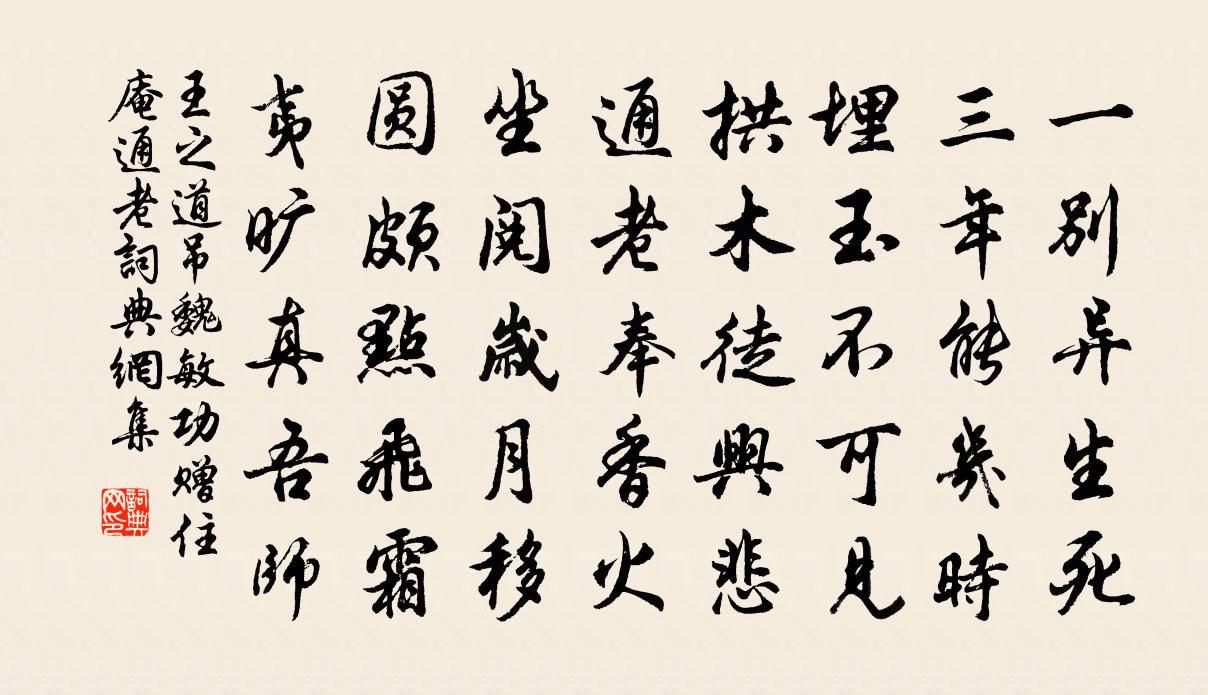 一别异生死
三年能幾時
埋玉不可見
拱木徒興悲
通老奉香火
坐阅歲月移
圆頗點飛霜
夷旷真吾師
王之道吊魏敏功赠住
庵通老詞典網集
詞典网印